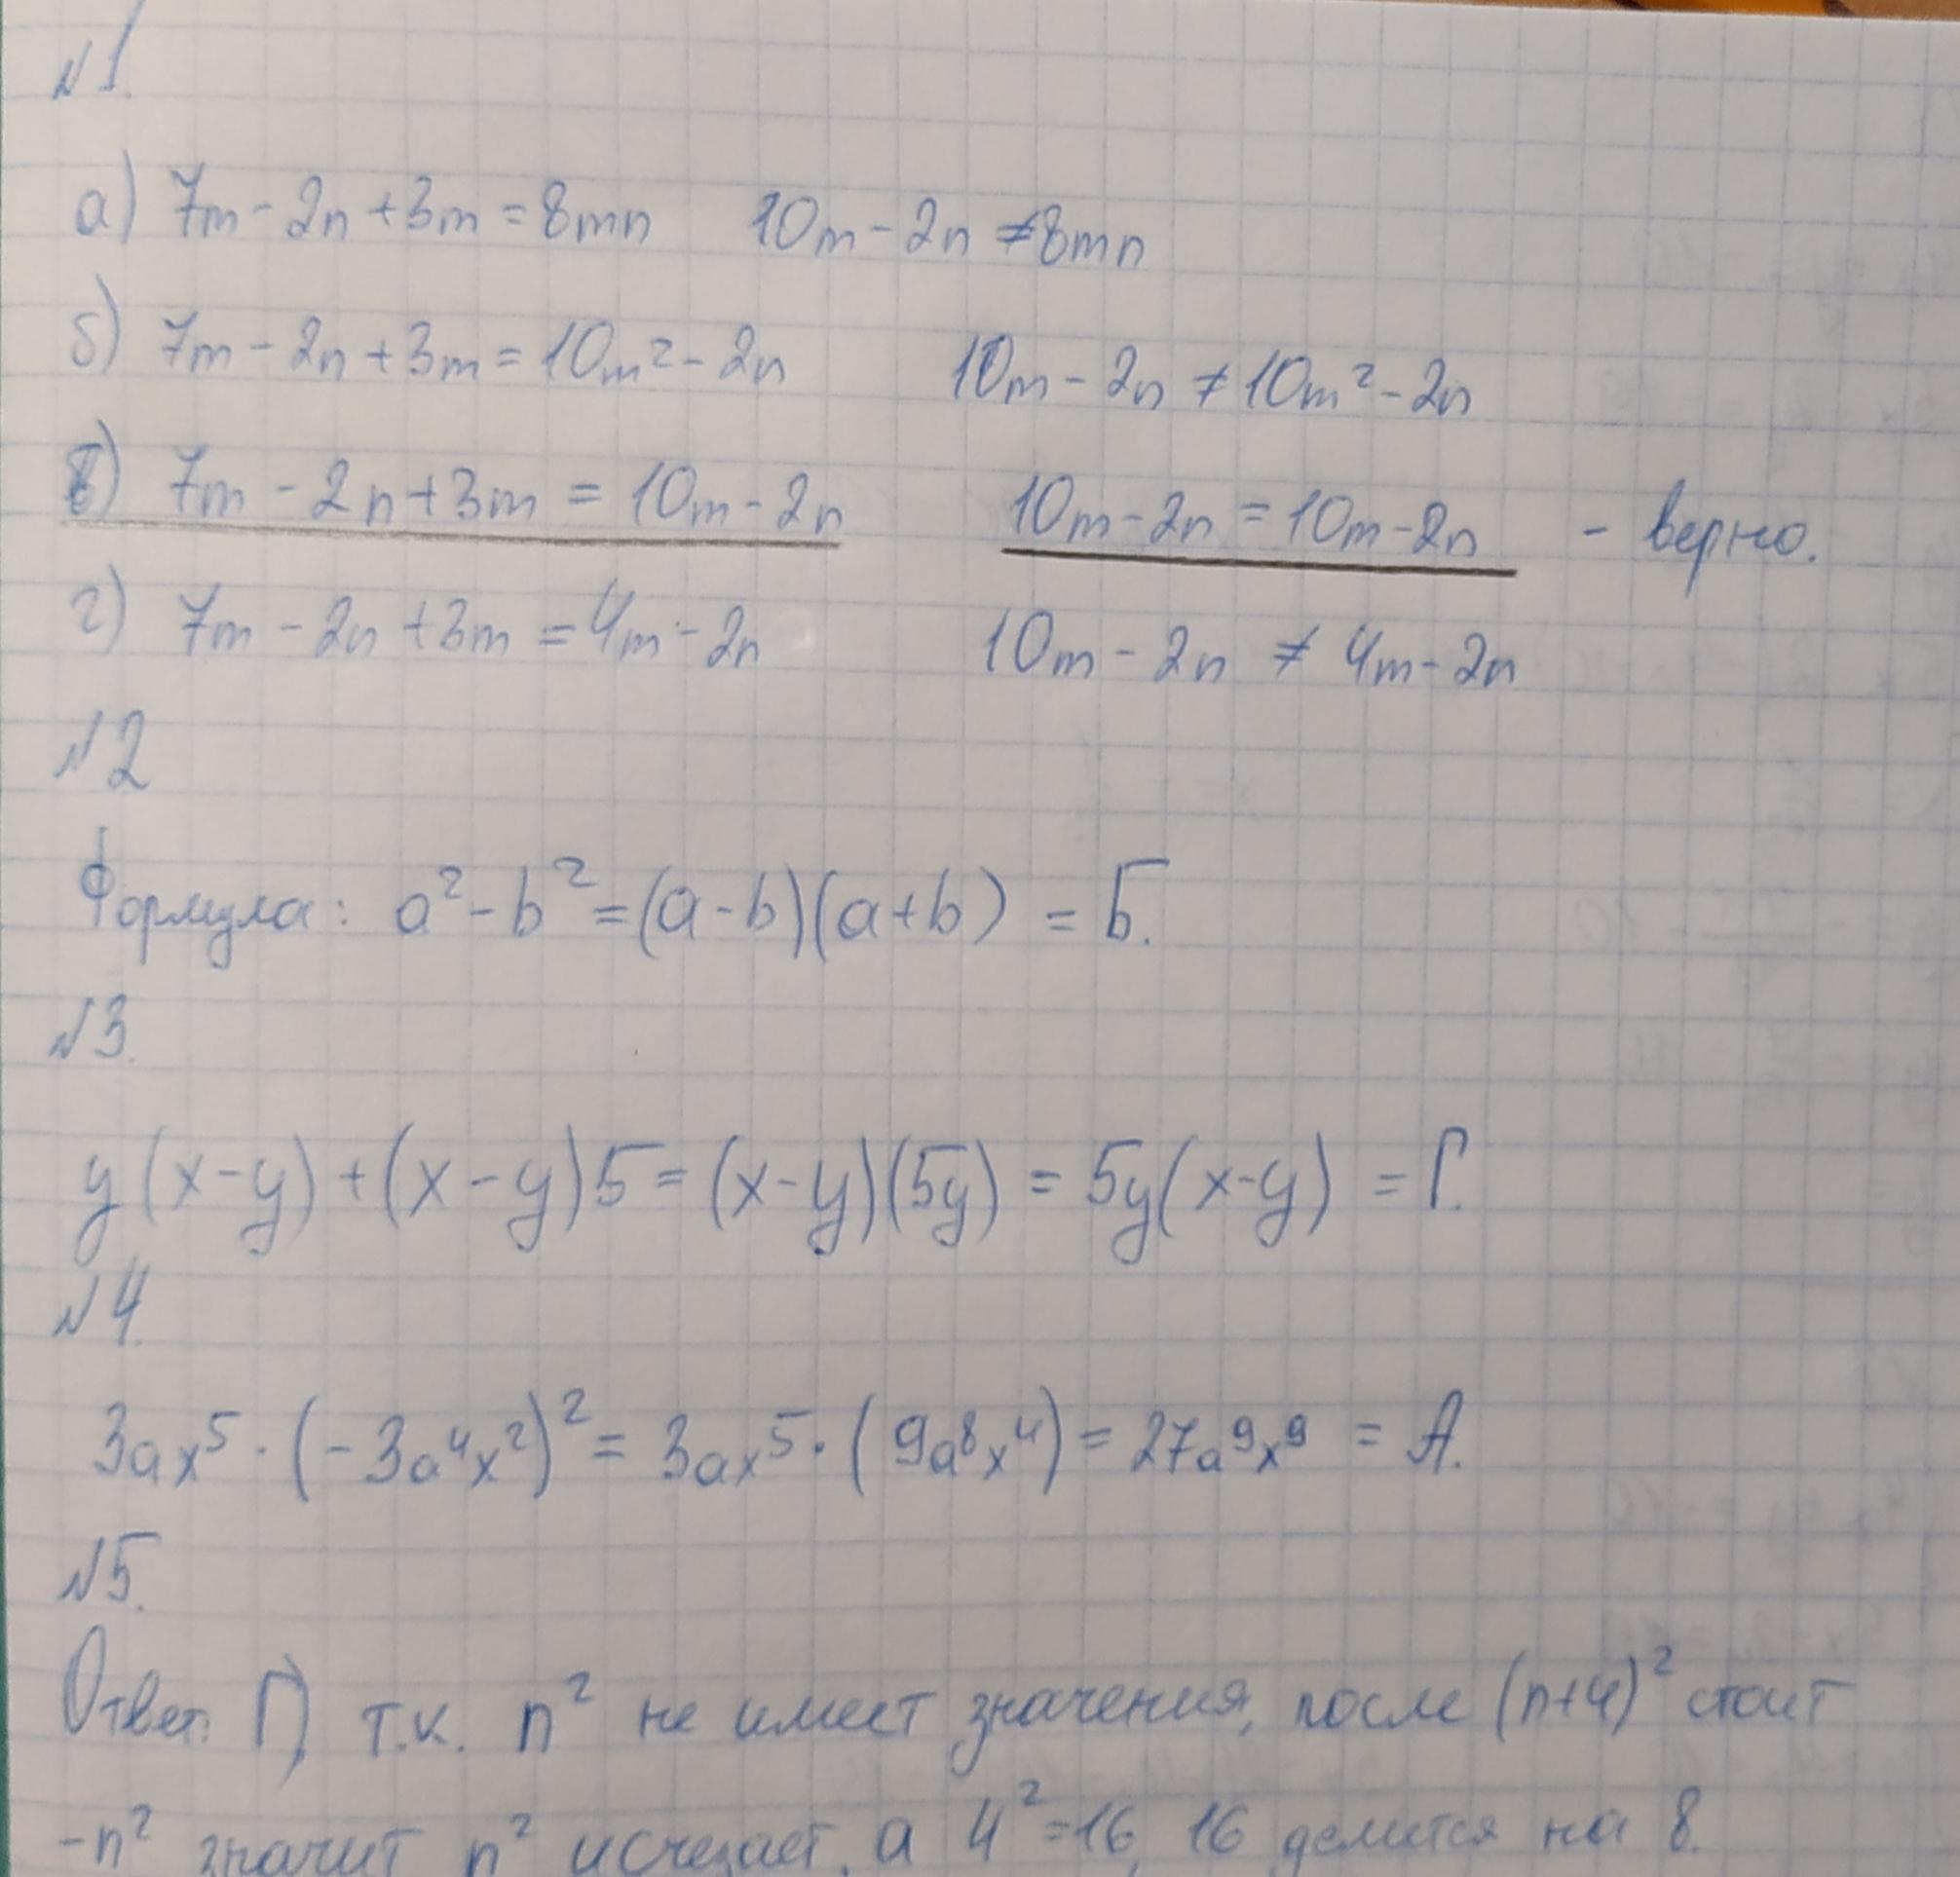 №1.
а) 7m - 2n + 3m = 8mn 10m - 2n ≠ 8mn
б) 7m - 2n + 3m = 10m² - 2n 10m - 2n ≠ 10m² - 2n
в) 7m - 2n + 3m = 10m - 2n 10m - 2n = 10m - 2n - верно.
г) 7m - 2n + 3m = 4m - 2n 10m - 2n ≠ 4m - 2n
№2
Формула: a² - b² = (a - b)(a + b) = Б.
№3.
y(x-y) + (x-y)5 = (x-y)(5y) = 5y(x-y) = Г.
№4.
3ax⁵ · (-3a⁴x²)² = 3ax⁵ · (9a⁸x⁴) = 27a⁹x⁹ = А.
№5.
Ответ: Г) т.к. n² не имеет значения, после (n+4)² стоит
-n² значит n² исчезает, а 4² = 16, 16 делится на 8.